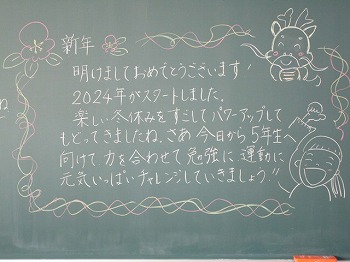 新年
明けましておめでとうございます!
2024年がスタートしました。
楽しい冬休みをすごしてパワーアップして
もどってきましたね。さあ今日から5年生へ
向けて力を合わせて勉強に運動に
元気いっぱいチャレンジしていきましょう!!
ね